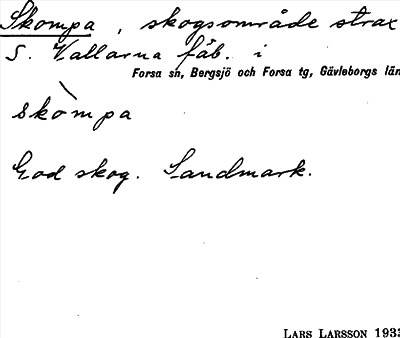 Skompa, skogsområde strax
S. Vallarna fäb. i
Forsa sn, Bergsjö och Forsa tg, Gävleborgs län
skòmpa
God skog. Sandmark.
LARS LARSSON 1933